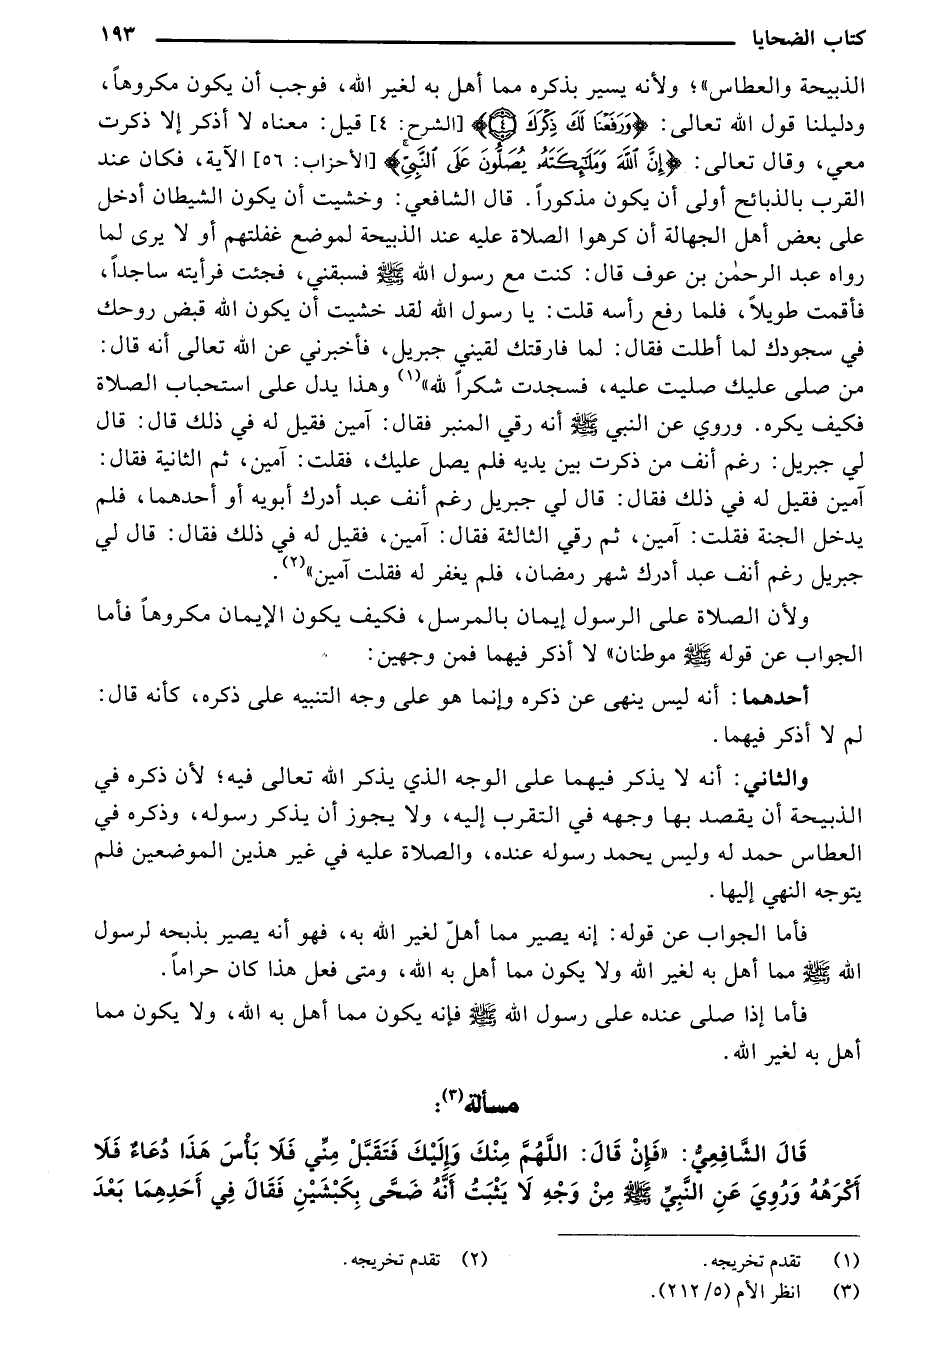 كتاب الضحايا ١٩٣
الذبيحة والعطاس»؛ ولأنه يسير بذكره مما أهل به لغير الله، فوجب أن يكون مكروهاً،
ودليلنا قول الله تعالى: ﴿وَرَفَعْنَا لَكَ ذِكْرَكَ ۝٤﴾ [الشرح: ٤] قيل: معناه لا أذكر إلا ذكرت
معي، وقال تعالى: ﴿إِنَّ ٱللَّهَ وَمَلَٰٓئِكَتَهُۥ يُصَلُّونَ عَلَى ٱلنَّبِيِّۚ﴾ [الأحزاب: ٥٦] الآية، فكان عند
القرب بالذبائح أولى أن يكون مذكوراً. قال الشافعي: وخشيت أن يكون الشيطان أدخل
على بعض أهل الجهالة أن كرهوا الصلاة عليه عند الذبيحة لموضع غفلتهم أو لا يرى لما
رواه عبد الرحمٰن بن عوف قال: كنت مع رسول الله ﷺ فسبقني، فجئت فرأيته ساجداً،
فأقمت طويلاً، فلما رفع رأسه قلت: يا رسول الله لقد خشيت أن يكون الله قبض روحك
في سجودك لما أطلت فقال: لما فارقتك لقيني جبريل، فأخبرني عن الله تعالى أنه قال:
من صلى عليك صليت عليه، فسجدت شكراً لله»(١) وهذا يدل على استحباب الصلاة
فكيف يكره. وروي عن النبي ﷺ أنه رقي المنبر فقال: آمين فقيل له في ذلك قال: قال
لي جبريل: رغم أنف من ذكرت بين يديه فلم يصل عليك، فقلت: آمين، ثم الثانية فقال:
آمين فقيل له في ذلك فقال: قال لي جبريل رغم أنف عبد أدرك أبويه أو أحدهما، فلم
يدخل الجنة فقلت: آمين، ثم رقي الثالثة فقال: آمين، فقيل له في ذلك فقال: قال لي
جبريل رغم أنف عبد أدرك شهر رمضان، فلم يغفر له فقلت آمين»(٢).
ولأن الصلاة على الرسول إيمان بالمرسل، فكيف يكون الإيمان مكروهاً فأما
الجواب عن قوله ﷺ موطنان» لا أذكر فيهما فمن وجهين:
أحدهما: أنه ليس ينهى عن ذكره وإنما هو على وجه التنبيه على ذكره، كأنه قال:
لم لا أذكر فيهما.
والثاني: أنه لا يذكر فيهما على الوجه الذي يذكر الله تعالى فيه؛ لأن ذكره في
الذبيحة أن يقصد بها وجهه في التقرب إليه، ولا يجوز أن يذكر رسوله، وذكره في
العطاس حمد له وليس يحمد رسوله عنده، والصلاة عليه في غير هذين الموضعين فلم
يتوجه النهي إليها.
فأما الجواب عن قوله: إنه يصير مما أهلّ لغير الله به، فهو أنه يصير بذبحه لرسول
الله ﷺ مما أهل به لغير الله ولا يكون مما أهل به الله، ومتى فعل هذا كان حراماً.
فأما إذا صلى عنده على رسول الله ﷺ فإنه يكون مما أهل به الله، ولا يكون مما
أهل به لغير الله.
مسألة(٣):
قَالَ الشَّافِعِيُّ: «فَإِنْ قَالَ: اللَّهُمَّ مِنْكَ وَإِلَيْكَ فَتَقَبَّلْ مِنِّي فَلَا بَأْسَ هَذَا دُعَاءٌ فَلَا
أَكْرَهُهُ وَرُوِيَ عَنِ النَّبِيِّ ﷺ مِنْ وَجْهٍ لَا يَثْبَتُ أَنَّهُ ضَحَّى بِكَبْشَيْنِ فَقَالَ فِي أَحَدِهِمَا بَعْدَ
(١) تقدم تخريجه. (٢) تقدم تخريجه.
(٣) انظر الأم (٥/ ٢١٢).